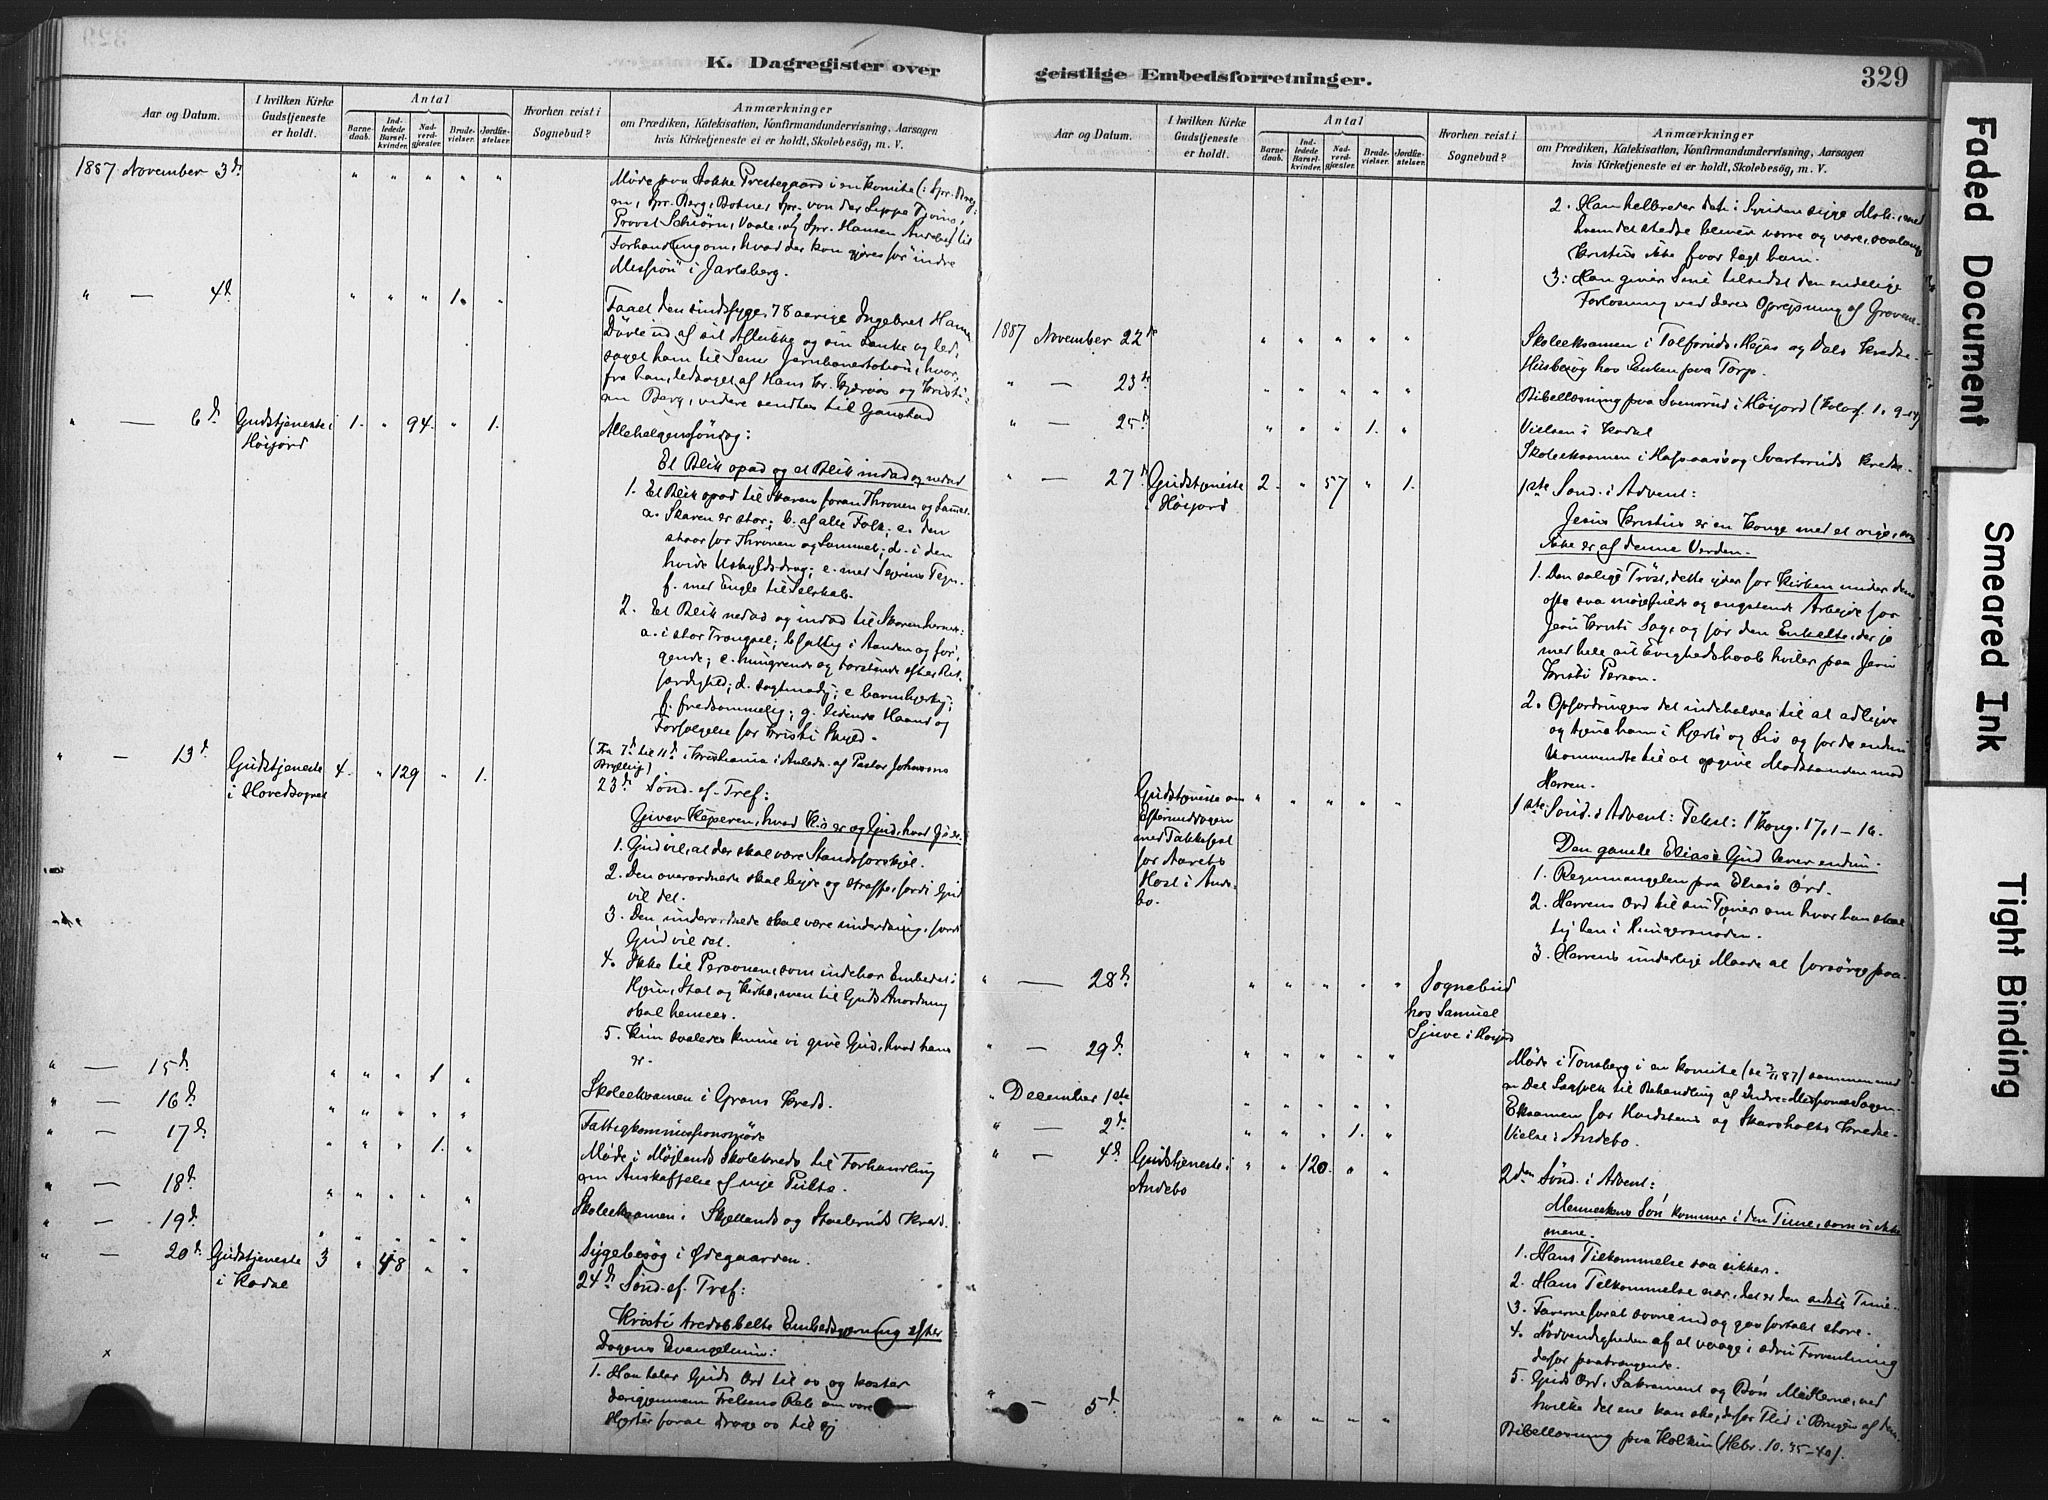 K. Dagregister over
Aar og Datum.
I hvilken Kirke Gudstjeneste er holdt.
Antal
Barnedaab.
Indledede Barselkvinder.
Nadverdgjæster.
Brudevielser.
Jordfæstelser.
Hvorhen reist i Sognebud?
Anmærkninger
om Prædiken, Katekisation, Konfirmandundervisning, Aarsagen
hvis Kirketjeneste ei er holdt, Skolebesøg, m. V.
1887 November 3d. " " " " "
Møde paa Stokke Prestegaard i en Komite (: Spr.
Spr. Berg, Botne, Spr. von der Lippe Tjømø,
Provst Schiørn, Vaale, og Spr. Hansen Andebo) til
Forhandling om, hvad der kan gjøres for "indre
Mission" i Jarlsberg.
" — 4d. " " " 1. "
Faaet den sindssyge, 78 aarige Ingebret Hansen
ud af sit Aflukke og sin Lænke og led-
saget ham til Sems Jernbanestation, hvor-
fra han, ledsaget af Hans Kr. og Kristi-
an Berg, videre sendtes til Gaustad
" — 6d. Gudstjeneste i Høijord 1. " 94. " 1.
Allehelgensøndag:
Et Blik opad og et Blik indad og nedad
1. Et Blik opad til Skaren foran Thronen og Lammet.
a. Skaren er stor; b. af alle Folk; c. den
staar for Thronen og Lammet; d. i den
hvide Uskyldsdragt; e. med Seirens Tegn.
f. med Engle til Selskab.
2. Et Blik nedad og indad til Skaren herned:
a. i stor Trængsel; b. fattig i Aanden og sør-
gende; c. hungrende og tørstende efter Ret-
færdighed; d. sagtmodig; e. barmhjertig;
f. fredsommelig; g. lidende Haand og
Forfølgelse for Kristi Skyld.
(Fra 7d. til 11d. i Kristiania i Anledn. af Pastor Johnsons
Bryllup)
" — 13d. Gudstjeneste i Hovedsognet 4. " 129 " 1.
23d. Sønd. ef. Tref:
Giver Keiseren, hvad K.s er og Gud, hvad G.s er.
1. Gud vil, at der skal være Standsforskjel.
2. Den overordnede skal byde og straffe, fordi Gud
vil det.
3. Den underordnede skal være underdanig, fordi
Gud vil det.
4. Ikke til Personen, som indehar Embedet i
Hjem, Stat og Kirke, men til Guds Anordning
skal hensees.
5. Kun saaledes kunne vi give Gud, hvad hans
er.
" — 15d. " " " 1 "
Skoleeksamen i Grans Kreds.
" — 16d. " " " " "
Fattigkommissionsmøde
" — 17d. " " " 1. "
Møde i Møylands Skolekreds til Forhandling
om Anskaffelse af nye Pulte.
" — 18d. " " " " "
Skoleeksamen i Skjellands og Kreds.
" — 19d. " " " " "
Sygebesøg i Ødegaarden.
" — 20d. Gudstjeneste i Kodal 3 " 48 " "
24d. Sønd. ef. Tref:
Kristi tredobbelte Embedsgjerning efter
Dagens Evangelium:
1. Han taler Guds Ord til os og kaster
derigjennem Frelsens Reb om vore
Hjerter forat drage os til sig
geistlige Embedsforretninger.
329
Aar og Datum.
I hvilken Kirke Gudstjeneste er holdt.
Antal
Barnedaab.
Indledede Barselkvinder.
Nadverdgjæster.
Brudevielser.
Jordfæstelser.
Hvorhen reist i Sognebud?
Anmærkninger
om Prædiken, Katekisation, Konfirmandundervisning, Aarsagen
hvis Kirketjeneste ei er holdt, Skolebesøg, m. V.
2. Han helbreder det i Synden syge Msk., med
hvem det stedse bliver værre og være, saalænge
Kristus ikke faar lægt ham.
3. Han giver Sine tilsidst den endelige
Forløsning ved deres Opreisning af Graven.
1887 November 22de " " " " "
Skoleeksamen i Tolfsruds, Hejas og Dals Kredse
Husbesøg hos Enken paa Torp.
" — 23d " " " " "
Bibellæsning paa Svensrud i Høijord (Kolos. 1. 9-14)
" — 25d " " " 1. "
Vielsen i Kodal
Skoleeksamen i Haspaas's og Svartsruds Kredse.
" — 27d Gudstjeneste i Høijord 2. " 57 " 1.
1ste Sønd. i Advent:
Jesus Kristus er en Konge med et rige, som
ikke er af denne Verden.
1. Den salige Trøst, dette yder for Kirken under dens
ofte saa møjefulde og ængstende Arbejde for
Jesu Kristi Sag, og for den Enkelte, der jo
med hele sit Evighedshaab hviler paa Jesu
Kristi Person.
2. Opfordringen det indeholder til at adlyde
og tjene ham i Hjerte og Liv og for de endnu
Uomvendte til at opgive Modstanden mod
Herren.
Gudstjeneste om Eftermiddagen med Takkefest for Aarets Høst i Andebo. " " " " "
1ste Sønd. i Advent: Tekst: 1 Kong. 17, 1 - 16.
Den gamle Elias's Gud lever endnu.
1. Regnmangelen paa Elias's Ord.
2. Herrens Ord til sin Tjener om hvor han skal
ty hen i Hungersnøden.
3. Herrens underlige Maade at forsørge paa.
" — 28d. " " " " " Sognebud hos Samuel i Høijord
" — 29d. " " " " "
Møde i Tønsberg i en Komite (se 3/11 87) sammen med
til Behandling af Indre-Missions Sagen.
" December 1ste " " " " "
Eksamen for Hvidstens og Skarsholts Kredse
" — 2d. " " " 1. "
Vielse i Andebo.
" — 4d. Gudstjeneste i Andebo " " 120. " "
2den Sønd. i Advent:
Menneskens Søn kommer i den Time, som vi ikke
mene.
1. Hans Tilkommelse saa sikker.
2. Hans Tilkommelse nær, det er den sidste Time.
3. Farerne forat sovne ind og gaa fortabt store.
4. Nødvendigheden af at vaage i ædru Forventning
derfor paatrængende.
5. Guds Ord, Sakrament og Bøn Midlerne, ved
hvilke det ene kan ske, derfor Flid i Brugen af dem.
" — 5d. " " " " "
Bibellæsning paa Holkin (Hebr. 10. 35-40).
Faded Document
Smeared Ink
Tight Binding